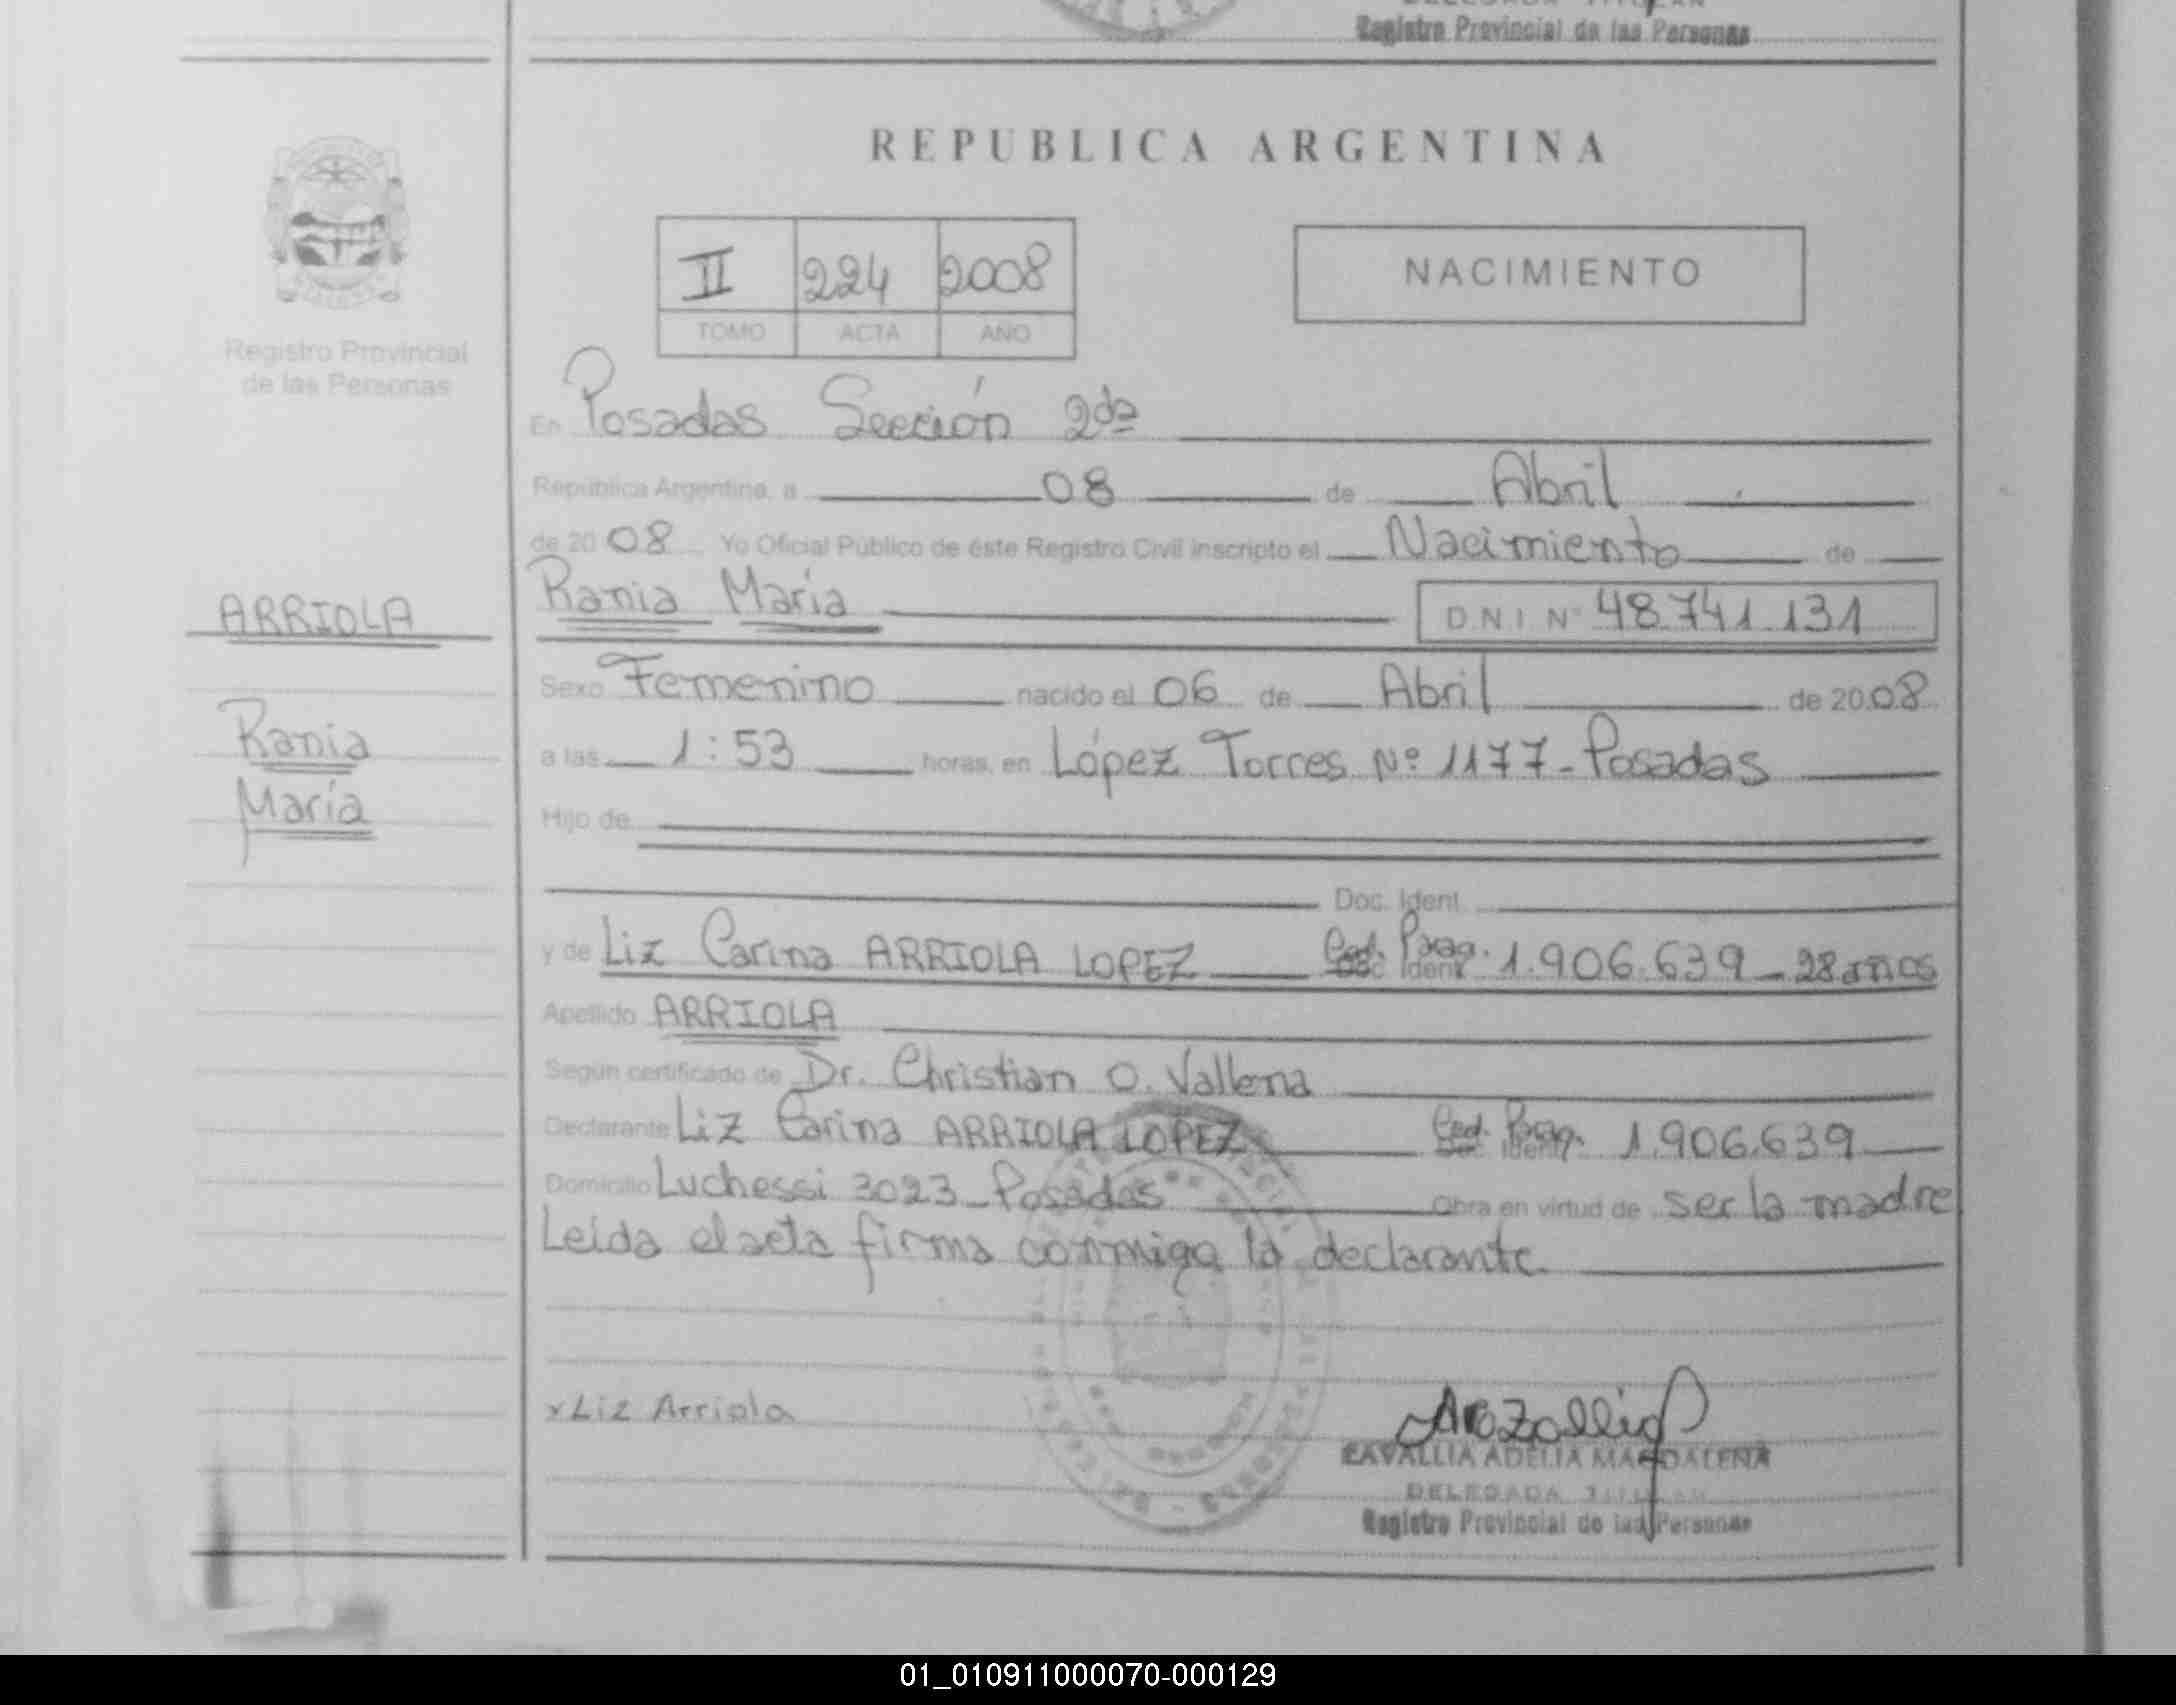 Registro Provincial de las Personas
REPUBLICA ARGENTINA
II 224 2008
TOMO ACTA AÑO
NACIMIENTO
Registro Provincial
de las Personas
ARRIOLA
Rania
María
En Posadas Sección 2da
República Argentina, a 08 de Abril
de 2008 Yo Oficial Público de éste Registro Civil inscripto el Nacimiento de
Rania María D.N.I Nº 48.741.131
Sexo Femenino nacido el 06 de Abril de 2008
a las 1:53 horas, en López Torres Nº 1177-Posadas
Hijo de
Doc. Ident.
y de Liz Carina ARRIOLA LOPEZ Ced. Parag. 1.906.639 - 28 años
Apellido ARRIOLA
Según certificado de Dr. Christian O. Vallena
Declarante Liz Carina ARRIOLA LOPEZ Ced. Parag. 1.906.639
Domicilio Luchessi 3023-Posadas Obra en virtud de ser la madre
Leída el acta firma conmigo la declarante
x Liz Arriola
ZAVALLIA ADELIA MAGDALENA
DELEGADA TITULAR
Registro Provincial de las Personas
01_010911000070-000129